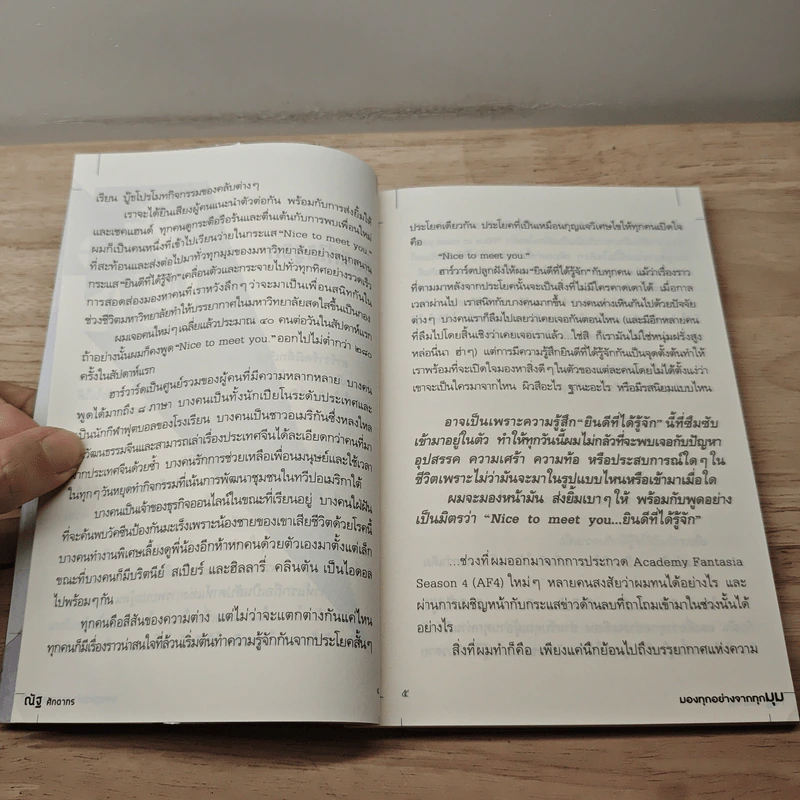 เรียน บู๊ธโปรโมทกิจกรรมของคลับต่างๆ
เราจะได้ยินเสียงผู้คนแนะนำตัวต่อกัน พร้อมกับการส่งยิ้มให้
และเชคแฮนด์ ทุกคนดูกระตือรือร้นและตื่นเต้นกับการพบเพื่อนใหม่
ผมก็เป็นคนหนึ่งที่เข้าไปเวียนว่ายในกระแส “Nice to meet you.”
ที่สะท้อนและส่งต่อไปทั่วทุกมุมของมหาวิทยาลัยอย่างสนุกสนาน
กระแส “ยินดีที่ได้รู้จัก” เคลื่อนตัวและกระจายไปทั่วทุกทิศอย่างรวดเร็ว
การสอดส่องมองหาคนที่เราหวังลึกๆ ว่าจะมาเป็นเพื่อนสนิทกันใน
ช่วงชีวิตมหาวิทยาลัยทำให้บรรยากาศในมหาวิทยาลัยสดใสขึ้นเป็นกอง
ผมเจอคนใหม่ๆ เฉลี่ยแล้วประมาณ ๔๐ คนต่อวันในสัปดาห์แรก
ถ้าอย่างนั้นผมก็คงพูด “Nice to meet you.” ออกไปไม่ต่ำกว่า ๒๘๐
ครั้งในสัปดาห์แรก
ฮาร์วาร์ดเป็นศูนย์รวมของผู้คนที่มีความหลากหลาย บางคน
พูดได้มากถึง ๘ ภาษา บางคนเป็นทั้งนักเปียโนระดับประเทศและ
เป็นนักกีฬาฟุตบอลของโรงเรียน บางคนเป็นชาวอเมริกันซึ่งหลงใหล
วัฒนธรรมจีนและสามารถเล่าเรื่องประเทศจีนได้ละเอียดกว่าคนที่มา
จากประเทศจีนด้วยซ้ำ บางคนรักการช่วยเหลือเพื่อนมนุษย์และใช้เวลา
ในทุกๆ วันหยุดทำกิจกรรมที่เน้นการพัฒนาชุมชนในทวีปอเมริกาใต้
บางคนเป็นเจ้าของธุรกิจออนไลน์ในขณะที่เรียนอยู่ บางคนใฝ่ฝัน
ที่จะค้นพบวัคซีนป้องกันมะเร็งเพราะน้องชายของเขาเสียชีวิตด้วยโรคนี้
บางคนทำงานพิเศษเลี้ยงดูพี่น้องอีกห้าหกคนด้วยตัวเองมาตั้งแต่เล็ก
ขณะที่บางคนก็มีบริตนีย์ สเปียร์ และฮิลลารี่ คลินตัน เป็นไอดอล
ไปพร้อมๆ กัน
ทุกคนคือสีสันของความต่าง แต่ไม่ว่าจะแตกต่างกันแค่ไหน
ทุกคนก็มีเรื่องราวน่าสนใจที่ล้วนเริ่มต้นทำความรู้จักกันจากประโยคสั้นๆ
ณัฐ ศักดาทร
ประโยคเดียวกัน ประโยคที่เป็นเหมือนกุญแจวิเศษไขให้ทุกคนเปิดใจ
คือ
“Nice to meet you.”
ฮาร์วาร์ดปลูกฝังให้ผม “ยินดีที่ได้รู้จัก” กับทุกคน แม้ว่าเรื่องราว
ที่ตามมาหลังจากประโยคนั้นจะเป็นสิ่งที่ไม่มีใครคาดเดาได้ เมื่อกาล
เวลาผ่านไป เราสนิทกับบางคนมากขึ้น บางคนห่างเหินกันไปด้วยปัจจัย
ต่างๆ บางคนเราก็ลืมไปเลยว่าเคยเจอกันตอนไหน (และมีอีกหลายคน
ที่ลืมไปโดยสิ้นเชิงว่าเคยเจอเราแล้ว...ใช่สิ ก็เรามันไม่ใช่หนุ่มฝรั่งสูง
หล่อนี่นา ฮ่าๆ) แต่การมีความรู้สึกยินดีที่ได้รู้จักกันเป็นจุดตั้งต้นทำให้
เราพร้อมที่จะเปิดใจมองหาสิ่งดีๆ ในตัวของแต่ละคนโดยไม่ได้ตั้งแง่ว่า
เขาจะเป็นใครมาจากไหน ผิวสีอะไร ฐานะอะไร หรือมีรสนิยมแบบไหน
อาจเป็นเพราะความรู้สึก “ยินดีที่ได้รู้จัก” นี้ที่ซึมซับ
เข้ามาอยู่ในตัว ทำให้ทุกวันนี้ผมไม่กลัวที่จะพบเจอกับปัญหา
อุปสรรค ความเศร้า ความท้อ หรือประสบการณ์ใดๆ ใน
ชีวิตเพราะไม่ว่ามันจะมาในรูปแบบไหนหรือเข้ามาเมื่อใด
ผมจะมองหน้ามัน ส่งยิ้มเบาๆ ให้ พร้อมกับพูดอย่าง
เป็นมิตรว่า “Nice to meet you...ยินดีที่ได้รู้จัก”
...ช่วงที่ผมออกมาจากการประกวด Academy Fantasia
Season 4 (AF4) ใหม่ๆ หลายคนสงสัยว่าผมทนได้อย่างไร และ
ผ่านการเผชิญหน้ากับกระแสข่าวด้านลบที่ถาโถมเข้ามาในช่วงนั้นได้
อย่างไร
สิ่งที่ผมทำก็คือ เพียงแค่นึกย้อนไปถึงบรรยากาศแห่งความ
๕
มองทุกอย่างจากทุกมุม